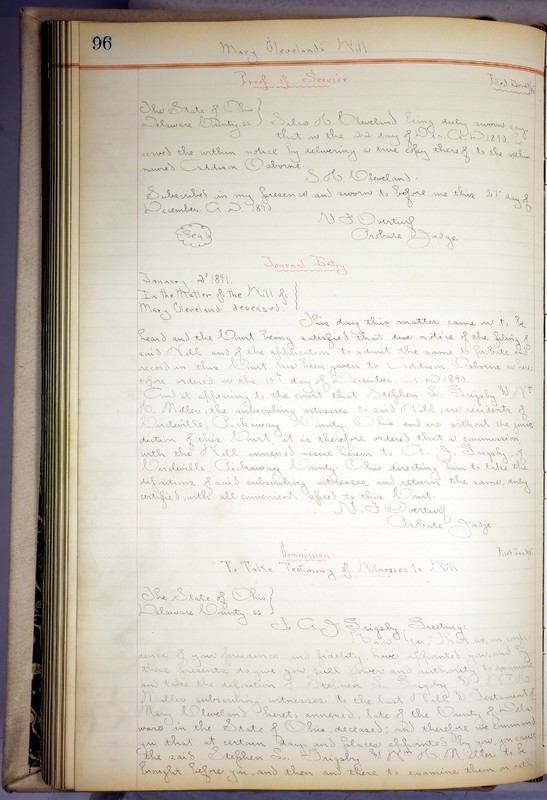 96
Mary Cleveland's Will
Proof of Service
The State of Ohio }
Delaware County ss } Silas H Cleveland being duly sworn says
that on the 22 day of A.D. 1890. he
served the within notice by delivering a true copy thereof to the within
named Addison Osborne.
S. H. Cleveland.
Subscribed in my presence and sworn to before me this 27" day of
December A.D. 1890
N. F. Overturf
Seal
Probate Judge
Journal Entry
January 2" 1891.
In the Matter of the Will of }
Mary Cleveland deceased. }
This day this matter came on to be
heard and the Court being satisfied that due notice of the filing of
said Will and of the application to admit the same to Probate and
record in this Court has been given to Addison Osborne as here
tofore ordered on the day of December A.D. 1890.
And it appearing to the court that Stephen L. Grigsby & Wm
H. Miller, the subscribing witnesses to said Will, are residents of
Pickaway County Ohio and are without the juris
diction of this Court, it is therefore ordered that a commission
with the Will annexed issue herein to A. J. Grigsby, of
Pickaway County, Ohio directing him to take the
depositions of said subscribing witnesses and return the same, duly
certified, with all convenient speed to this Court.
N. F. Overturf
Probate Judge
Commission
To Take Testimony of Witnesses to Will
The State of Ohio }
Delaware County ss }
To A. J. Grigsby, Greeting:
Know You, That we, in confi
dence of your prudence and fidelity, have appointed you, and by
these presents, do give you full power and authority to examine
and take the deposition of Stephen L. Grigsby & Wm H.
Miller subscribing witnesses to the last Will & Testament of
Mary Cleveland hereto annexed, late of the County of Dela
ware in the State of Ohio, deceased; and therefore we command
you that at certain days and places appointed by you, you cause
the said Stephen L. Grigsby & Wm H. Miller to be
brought before you, and then and there to examine them on